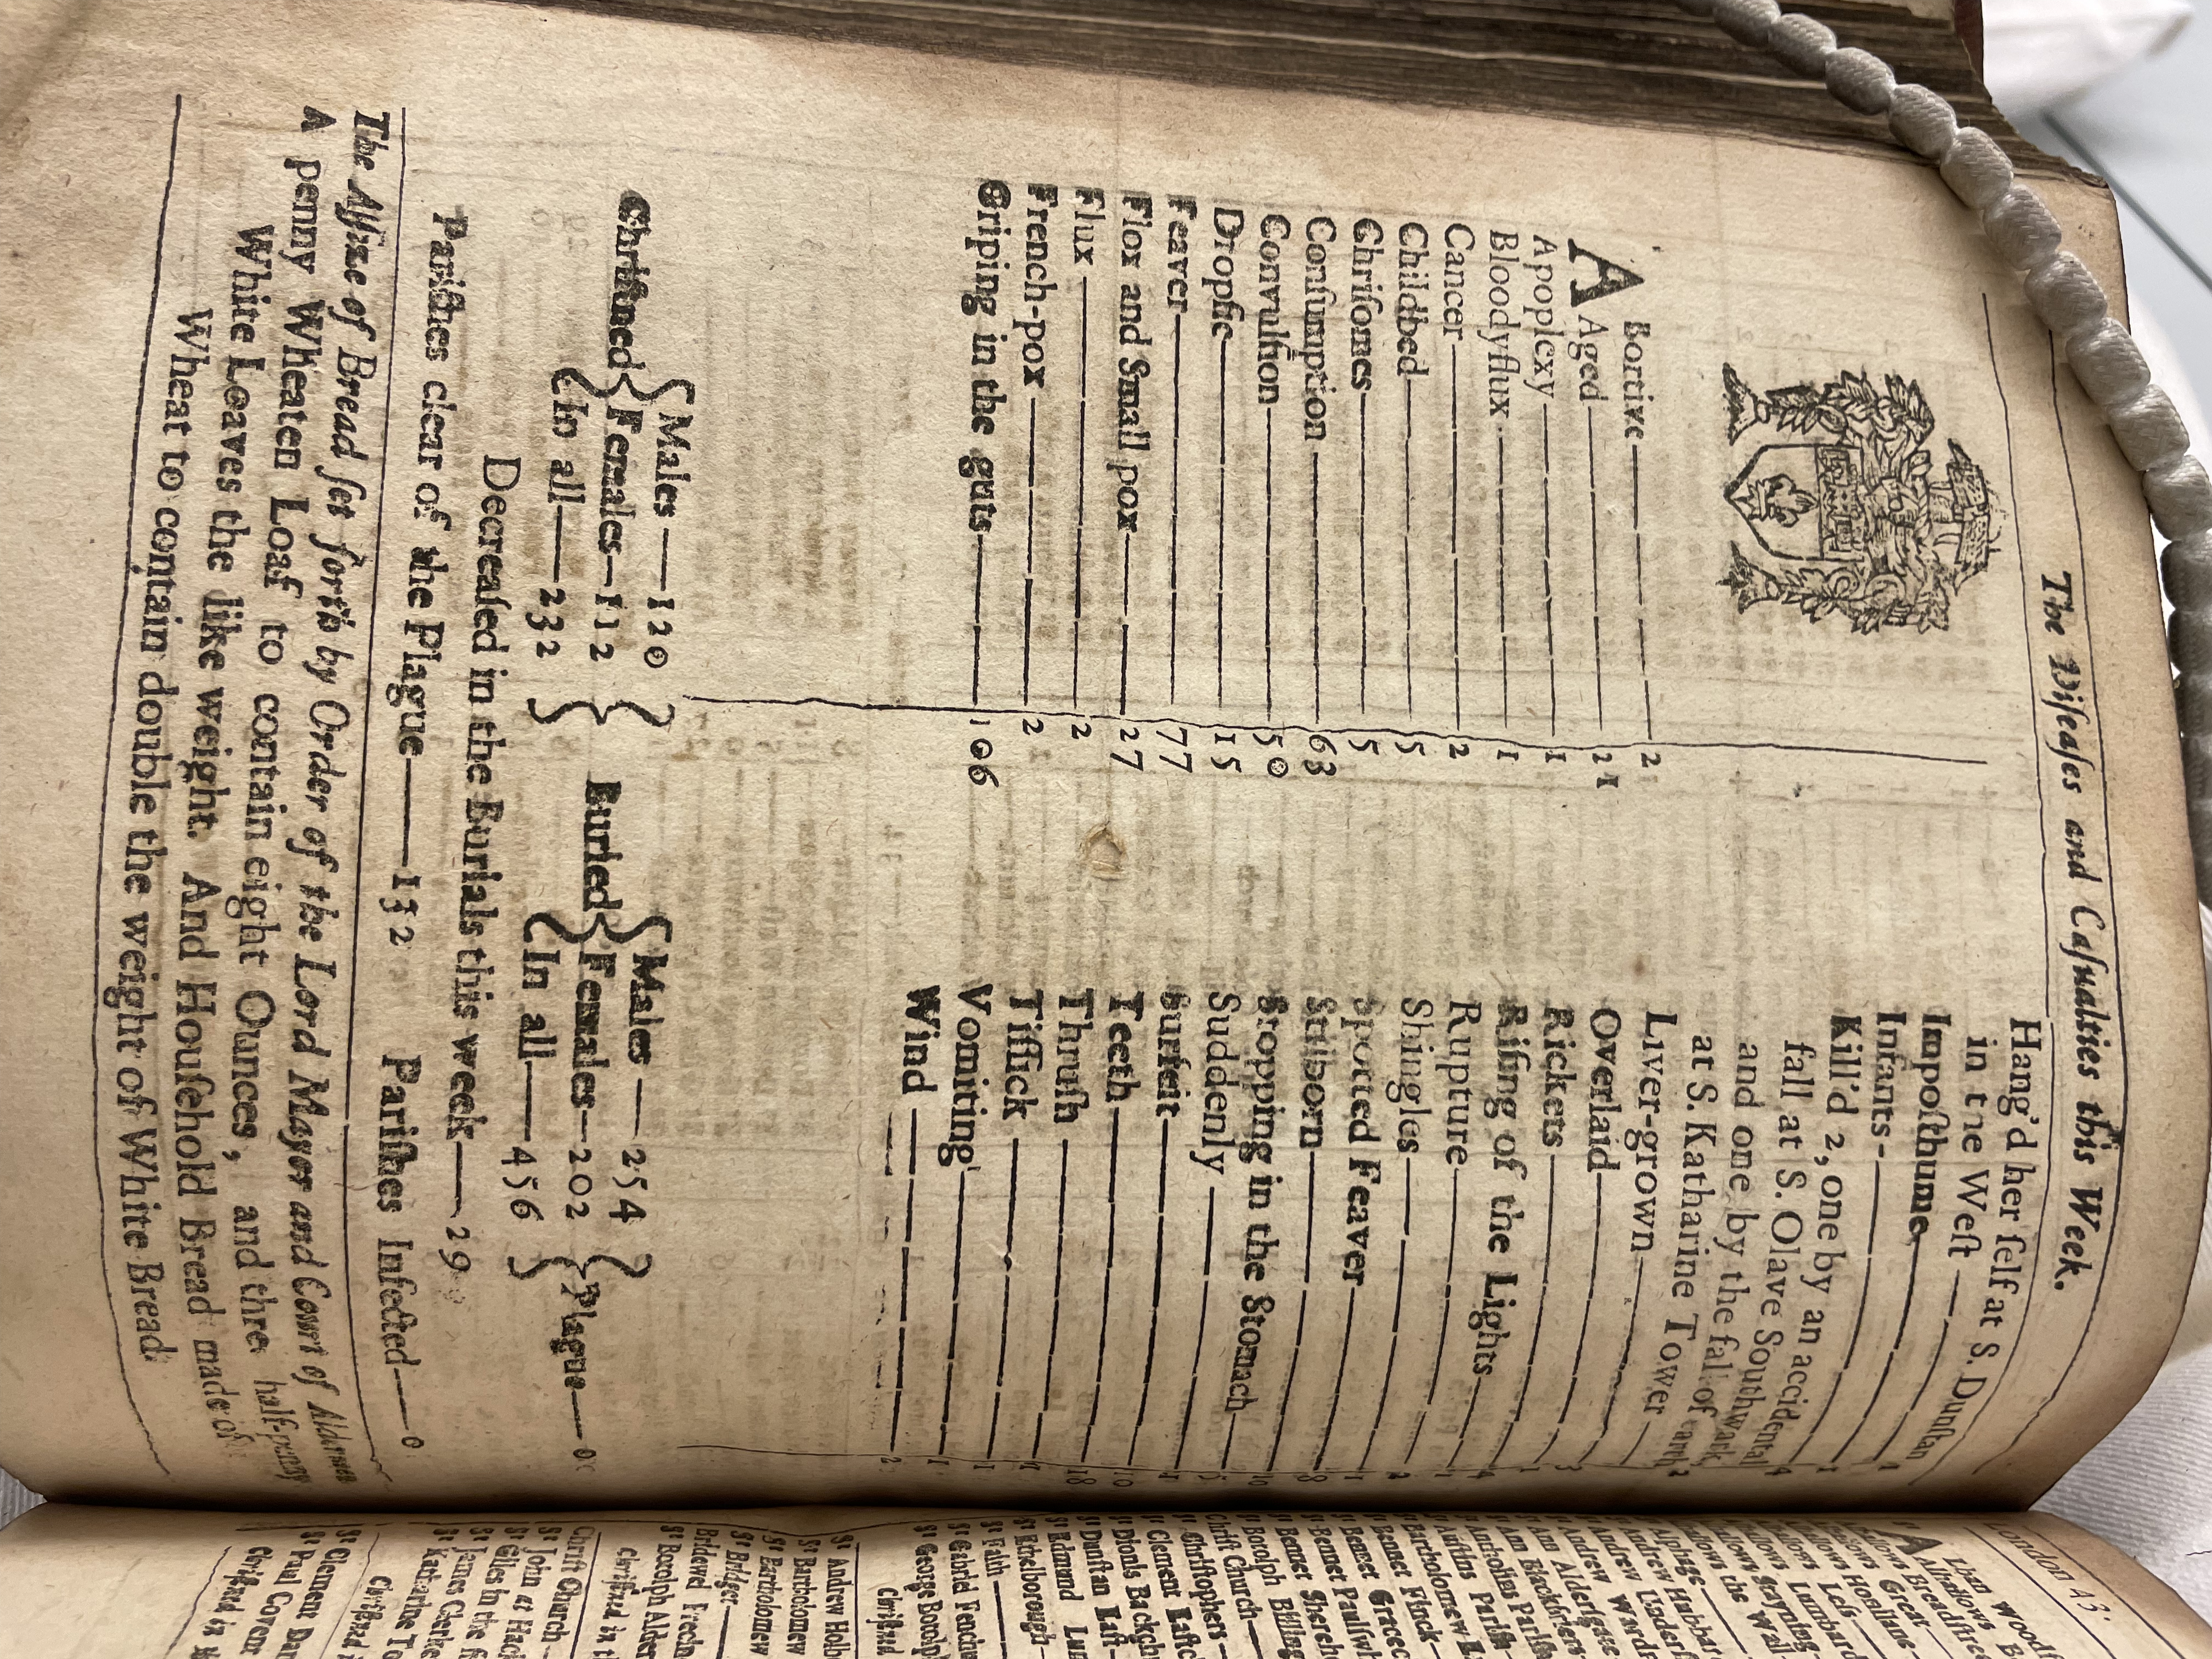 The Diſeaſes and Caſualties this Week.
ABortive 2
Aged 21
Apoplexy 1
Bloodyflux 1
Cancer 2
Childbed 5
Chriſomes 5
Conſumption 63
Convulſion 50
Dropſie 15
Feaver 77
Flox and Small pox 27
Flux 2
French-pox 2
Griping in the guts 106
Hang'd her ſelf at S. Dunſtan
in the Weſt
Impoſthume
Infants
Kill'd 2, one by an accidental
fall at S. Olave Southwark
and one by the fall of earth
at S. Katharine Tower 2
Liver-grown
Overlaid
Rickets 3
Riſing of the Lights
Rupture
Shingles 1
Spotted Feaver 2
Stilborn
Stopping in the Stomach
Suddenly
Surfeit
Teeth
Thruſh
Tiſſick
Vomiting 1
Wind 1
2
Chriſtned { Males 120
Females 112
In all 232 }
Buried { Males 254
Females 202
In all 456 }
Plague 0
Decreaſed in the Burials this week 29
Pariſhes clear of the Plague 132 Pariſhes Infected 0
The Aſſize of Bread ſet forth by Order of the Lord Mayor and Court of Aldermen
A penny Wheaten Loaf to contain eight Ounces, and three half-penny
White Leaves the like weight. And Houſehold Bread made of
Wheat to contain double the weight of White Bread.
London 43
A Lban Woodſ
Alhallows B
Alhallows Breadſtree
Great
Honilane
Leſs
Lumbard
Stayning
the Wall
Alphage
Andrew Hubbar
Andrew Underſ
Andrew Wardr
Ann Alderſgate
Ann Blackfriers
Antholins Pariſh
Auſtins Pariſh
Bartholomew
Bennet Finck
Bennet Gracec
Bennet Paulſwh
Bennet Shereh
Botolph Billing
Chriſt Church
Sᵗ Chriſtophers
Sᵗ Clement Eaſtc
Sᵗ Dionis Backch
Sᵗ Dunſtan Eaſt
Sᵗ Edmund Lum
Sᵗ Ethelborough
Sᵗ Faith
Sᵗ Gabriel Fenchu
Sᵗ George Botolp
Chriſtned
Sᵗ Andrew Holb
Sᵗ Bartholomew
Sᵗ Bartholomew
Sᵗ Bridget
Bridewel Precin
Sᵗ Botolph Alder
Chriſtned in th
Chriſt Church
Sᵗ John at Hack
Sᵗ Giles in the f
Sᵗ James Clerke
Sᵗ Katharine To
Chriſtned
Sᵗ Clement Dan
Sᵗ Paul Coven
Chriſtned in